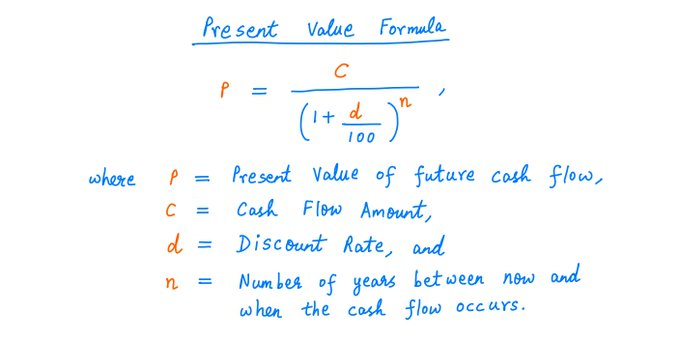 Present Value Formula
P = C / (1 + d/100)^n ,
where P = Present Value of future cash flow,
C = Cash Flow Amount,
d = Discount Rate, and
n = Number of years between now and
when the cash flow occurs.